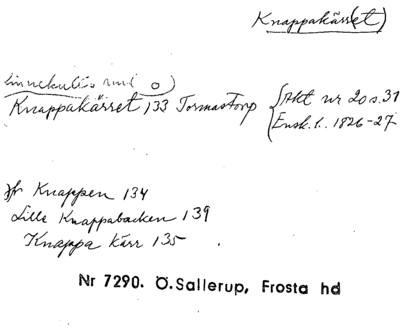 Knappakärr(et)
Knappakärret 133 Tormastorp
Akt nr 20 s. 31
Ensk. l. 1826-27
jfr Knappen 134
Lilla Knappabacken 139
Knappa kärr 135
Nr 7290. Ö.Sallerup, Frosta hd